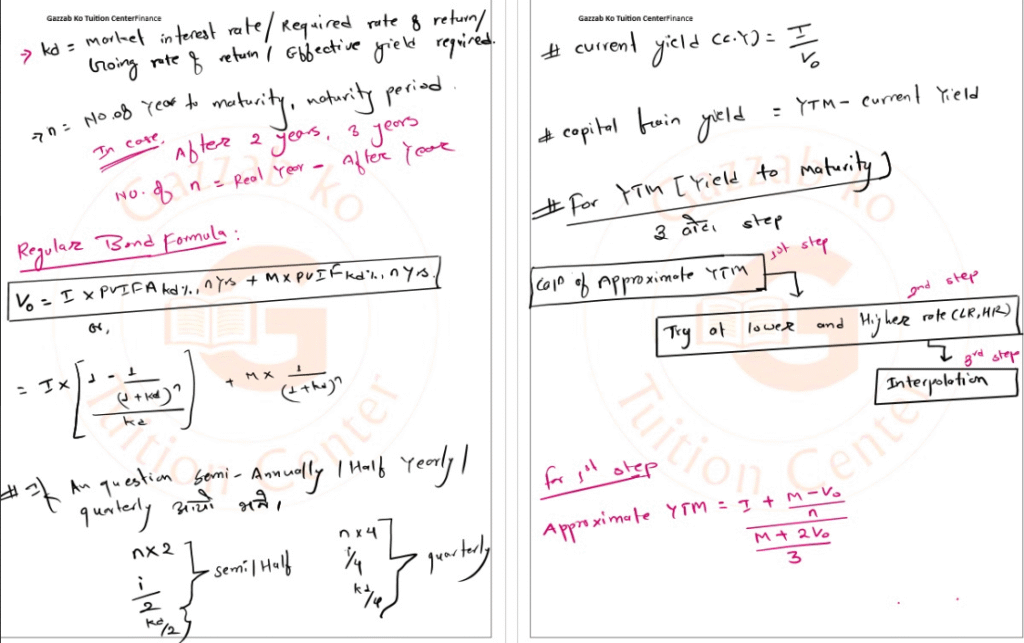 Gazzab Ko Tuition CenterFinance
→ kd = market interest rate / Required rate of return /
Going rate of return / Effective yield required.
→ n = No. of Year to maturity, maturity period.
In case, After 2 years, 3 years
No. of n = Real Year - After Year
Regular Bond Formula :
V₀ = I × PVIFA kd%, n yrs + M × PVIF kd%, n yrs.
or,
= I × [ 1 - 1/(1+kd)ⁿ / kd ] + M × 1/(1+kd)ⁿ
# If An question Semi-Annually / Half Yearly /
quarterly आयो भने,
n×2
i/2
kd/2
semi/Half
n×4
i/4
kd/4
quarterly
Gazzab Ko Tuition CenterFinance
# current yield (C.Y) = I/V₀
# capital gain yield = YTM - current Yield
# For YTM [Yield to maturity]
3 वटा step
1st step
Calⁿ of Approximate YTM
2nd step
Try at lower and Higher rate (LR, HR)
3rd step
Interpolation
for 1st step
Approximate YTM = I + M-V₀/n / M+2V₀/3
Gazzab ko
Tuition Center
Gazzab ko
Tuition Center